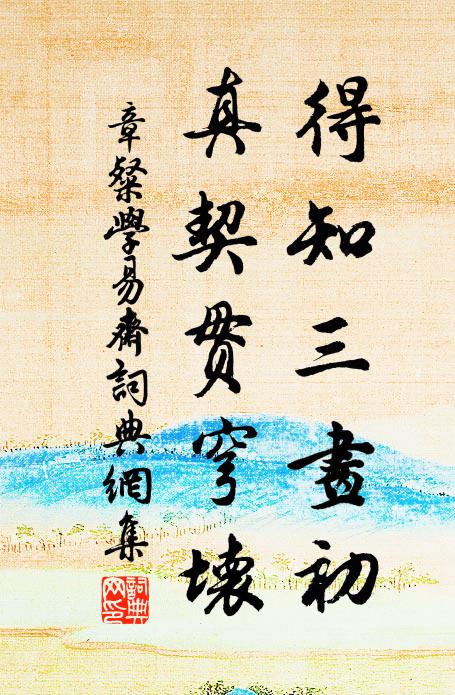 得知三畫初
真契貫穹壤
章粲學易齋詞典網集